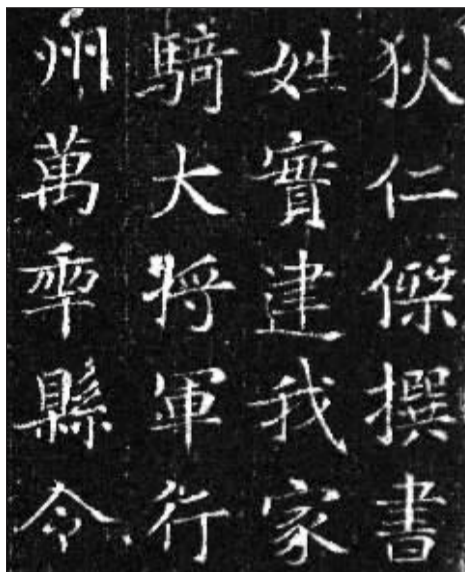 狄仁傑撰書
姓實建我家
騎大将軍行
州萬年縣令